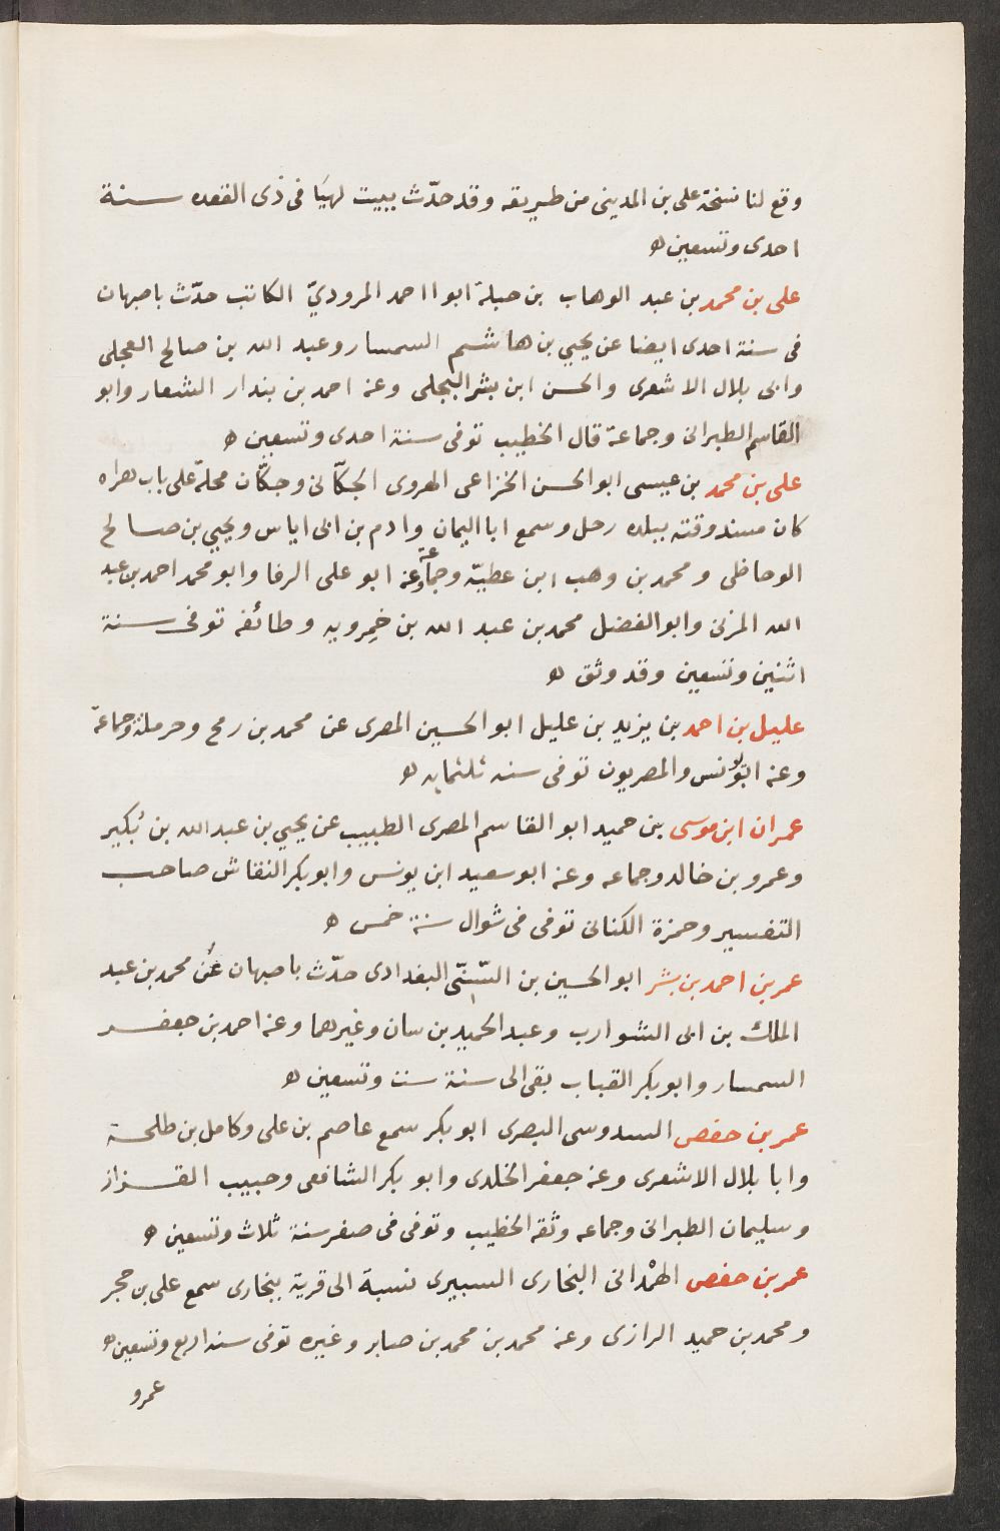 وقع لنا نسخة على بن المدينى من طريقه وقد حدّث ببيت لهيَا فى ذى القعده سنة
احدى وتسعين ه
على بن محمد بن عبد الوهاب بن جبلة ابو ااحمد المروديّ الكاتب حدّث باصبهان
فى سنة احدى ايضا عن يحيي بن هاشم السمسار وعبد الله بن صالح العجلى
وابى بلال الاشعرى والحسن ابن بشر البجلى وعنه احمد بن بندار الشعار وابو
القاسم الطبرانى وجماعة قال الخطيب توفى سنة احدى وتسعين ه
على بن محمد بن عيسى ابو الحسن الخزاعى الهروى الجكّانى وجكّان محلة على باب هراه
كان مسند وقته ببلده رحل وسمع ابا اليمان وادم بن ابى اياس ويحيي بن صالح
الوحاظى ومحمد بن وهب ابن عطيّه وجماعة وعنه ابو على الرفا وابو محمد احمد بن عبد
الله المزنى وابو الفضل محمد بن عبد الله بن خمِرويه وطائفه توفى سنة
اثنين وتسعين وقد وثق ه
عليل بن احمد بن يزيد بن عليل ابو الحسين المصرى عن محمد بن رمح وحرملة وجماعة
وعنه ابو يونس والمصريون توفى سنه ثلثمايه ه
عمران ابن موسى بن حميد ابو القاسم المصرى الطبيب عن يحيي بن عبد الله بن بُكير
وعمرو بن خالد وجماعه وعنه ابو سعيد ابن يونس وابو بكر النقاش صاحب
التفسير وحمزة الكنانى توفى فى شوال سنة خمس ه
عمر بن احمد بن بشر ابو الحسين بن السّنىّ البغدادى حدّث باصبهان عَن محمد بن عبد
الملك بن ابى الشوارب وعبد الحميد بن سان وغيرهما وعنه احمد بن جعفر
السمسار وابو بكر القباب بقى الى سنة ست وتسعين ه
عمر بن حفص السدوسى البصرى ابو بكر سمع عاصم بن على وكامل بن طلحة
وابا بلال الاشعرى وعنه جعفر الخلدى وابو بكر الشافعى وحبيب القزاز
وسليمان الطبرانى وجماعه وثقه الخطيب وتوفى فى صفر سنة ثلاث وتسعين ه
عمر بن حفص الهمْدانى البخارى السبيرى نسبة الى قرية ببخارى سمع على بن حجر
ومحمد بن حميد الرازى وعنه محمد بن محمد بن صابر وغيره توفى سنه اربع وتسعين ه
عمرو